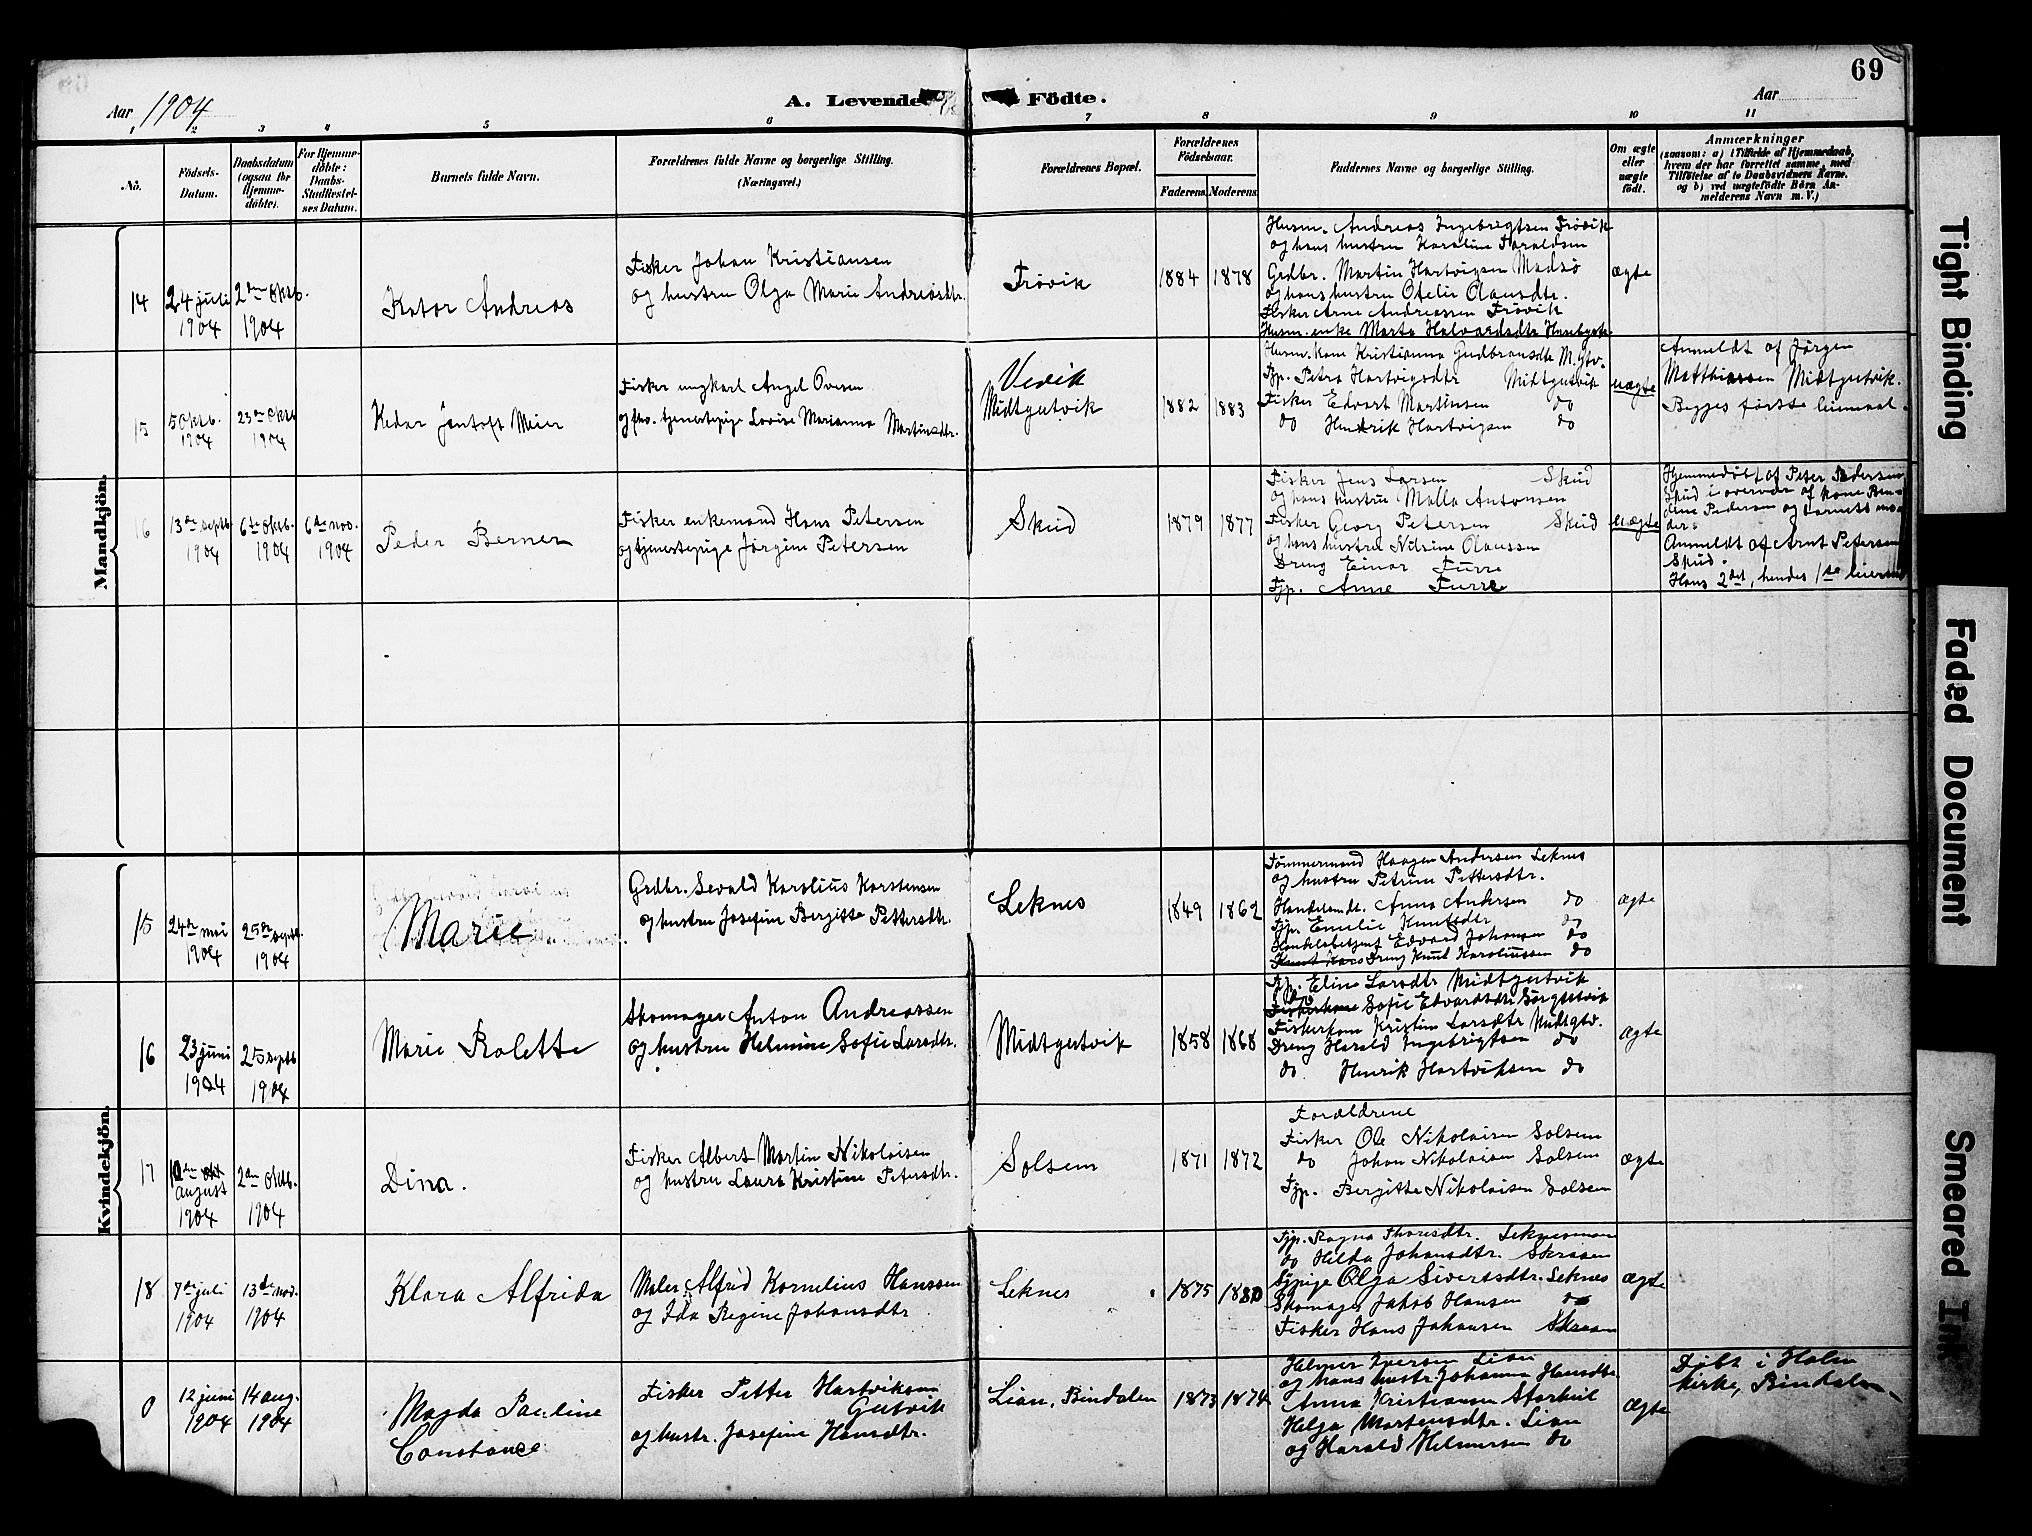 69
Aar 1904
A. Levende Födte.
Aar
1 2 3 4 5 6 7 8 9 10 11
No.
Födsels-
Datum.
Daabsdatum
(ogsaa for
Hjemme-
döbte).
For Hjemme-
döbte:
Daabs-
Stadfæstel-
ses Datum.
Barnets fulde Navn.
Forældrenes fulde Navne og borgerlige Stilling.
(Næringsvei.)
Forældrenes Bopæl.
Forældrenes
Födselsaar.
Faderens. Moderens.
Faddernes Navne og borgerlige Stilling.
Om ægte
eller
uægte
födt.
Anmærkninger
(saasom: a) i Tilfælde af Hjemmedaab,
hvem der har forrettet samme, med
Tilföielse af to Daabsvidners Navne.
og b) ved uægtefödte Börn An-
melderens Navn m. V.)
Mandkjön.
14
24 juli
1904
2den Oktb.
1904
Kator Andreas
Fisker Johan Kristiansen
og hustru Olga Marie Andreasdtr.
Frøvik
1884 1878
Husm. Andreas Ingebrigtsen Frøvik
og hans hustru Karoline Haraldsen
Grdbr. Martin Hartvigsen Madsø
og hans hustru Otelie Olausdtr.
Fisker Arne Andreassen Frøvik
Husm. enke Marta Halvardsdtr
ægte
15
5 Oktb.
1904
23de Oktb
1904
Kedar Jentoft Meier
Fisker ungkarl Angel Ovesen
og tjenestepige Lovise Marianna Martinsdtr.
Vevik
Midtgutvik
1882 1883
Husm. kone Kristianna Gudbransdtr M.gtv.
Tjp. Petra Hartvigsdtr Midtgutvik
Fisker Edvart Martinsen do
do Hendrik Hartvigsen do
uægte
Anmeldt af Jørgen
Matthiassen Midtgutvik.
Begges første leiermaal.
16
13de septb
1904
6te Oktb.
1904
6te nov.
1904
Peder Berner
Fisker enkemand Hans Petersen
og tjenestepige Jørgine Petersen
Skud
1879 1877
Fisker Jens Larsen Skud
og hans hustru Malla Antonsen
Fisker Georg Petersen Skud
og hans hustru Nilsine Olaussen
Dreng Einar Furre
Tjp. Anne Furre
uægte
Hjemmedöbt af Peter Pedersen
Skud i overvær af kone Ben-
dine Pedersen og barnets mo-
der.
Anmeldt af Arnt Petersen
Skud.
Hans 2det, hendes 1ste leiermaal
Kvindekjön.
15
24de mai
1904
25de septb.
1904
Marie
Grdbr. Sevald Karolius Karstensen
og hustru Josefine Bergitte Pettersdtr.
Leknes
1849 1862
Tømmermand Haagen Andersen Leknes
og hustru Petrine Pettersdtr.
Handelsmdt. Anna Andersen do
Tjp. Emelie Knutsdtr do
Handelsbetjent Edvard Johansen do
Dreng Knut Karoliussen do
ægte
16
23 juni
1904
25 septb
1904
Marie Rolette
Skomager Anton Andreassen
og hustru Helmine Sofie Larsdtr.
Midtgutvik
1858 1868
Tjp. Eline Larsdtr Midtgutvik
do Sofie Edvardsdtr Børgutvik
Fiskerkone Kristine Larsdtr Midtgtv.
Dreng Harald Ingebrigtsen do
do Henrik Hartviksen do
ægte
17
10de
august
1904
2den Oktb.
1904
Dina.
Fisker Albert Martin Nikolaisen
og hustru Laura Kristine Petersdtr.
Solsem
1871 1872
Forældrene
Fisker Ole Nikolaisen Solsem
do Johan Nikolaisen Solsem
Tjp. Bergitte Nikolaisen Solsem
ægte
18
7de juli
1904
13de nov.
1904
Klara Alfrida
Maler Alfrid Kornelius Hanssen
og Ida Regine Johansdtr
Leknes
1875 1880
Tjp. Ragna Thoresdtr. Leknesmoen
do Hilda Johansdtr. Skraaen
Sypige Olga Sivertsdtr. Leknes
Skomager Jakob Hansen do
Fisker Hans Johansen Skraaen
ægte
0
12 juni
1904
14 aug.
1904
Magda Pauline
Constance
Fisker Petter Hartviksen
Gutvik
og hustr. Josefine Hansdtr.
Lian, Bindalen
1873 1874
Helmer Iversen Lian
og hans hustr. Johanna Hansdtr
Anna Kristiansen Storkil
Helga Martensdtr. Lian
og Harald Helmersen do
ægte
Døbt i Holm
kirke, Bindalen
Tight Binding
Faded Document
Smeared Ink